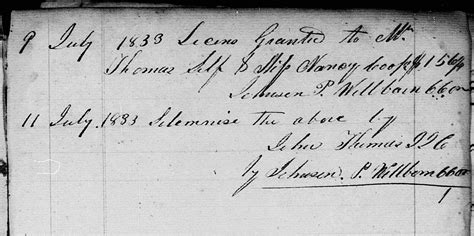 9 July 1833 Licins Granted to Mr
Thomas Self & Miss Nancy Cooper $1.56¼
Johnson P. Wellborn CCOO
11 July 1833 Solemnise the above by
John Thomas J I C
by Johnson P. Wellborn CCOO
1